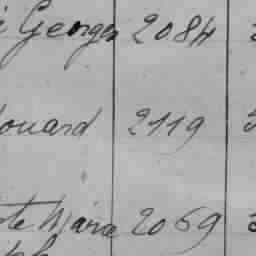 Georges 2084
ouard 2119
te Marie 2069